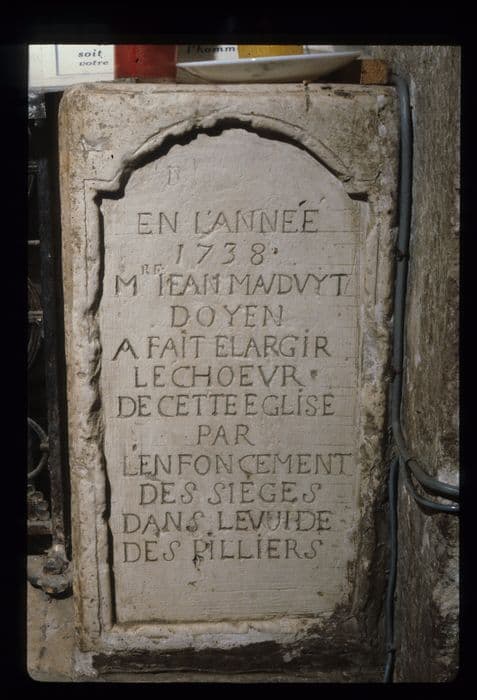 soit
votre
l'homm
EN L'ANNEÉ
1738·
MRE JEAN MAUDVYT
DOYEN
A FAIT ELARGIR
LECHOEVR·
DE CETTE EGLISE
PAR
LENFONÇEMENT
DES SIÈGES
DANS LEVUIDE
DES PILLIERS